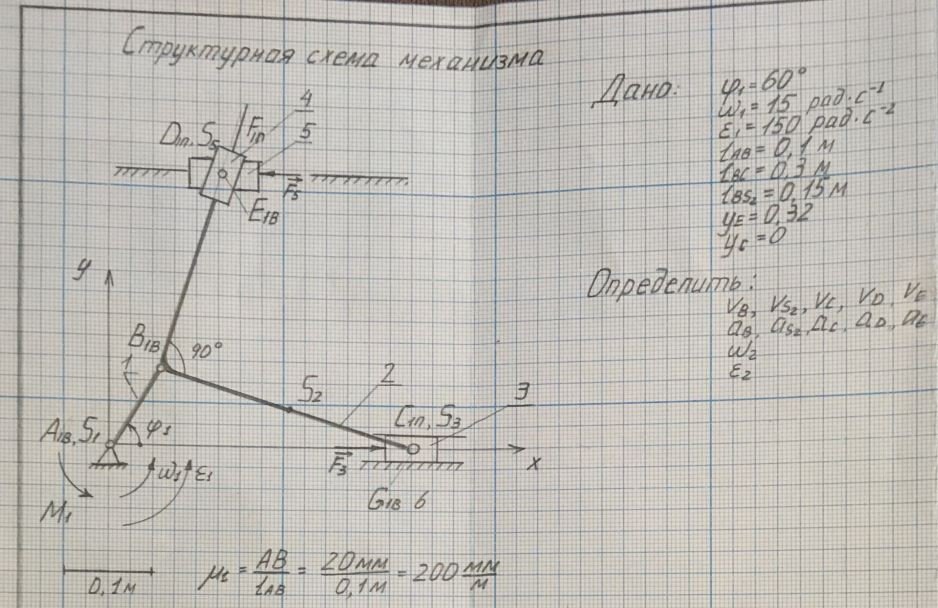 Структурная схема механизма
Дано: φ₁ = 60°
ω₁ = 15 рад·с⁻¹
ε₁ = 150 рад·с⁻²
l_AB = 0,1 м
l_BC = 0,3 м
l_BS₂ = 0,15 м
y_E = 0,32
y_C = 0
Определить:
V_B, V_S₂, V_C, V_D, V_E
a_B, a_S₂, a_C, a_D, a_E
ω₂
ε₂
4
F₁п
5
D₁п, S₅
F₅
E₁В
y
B₁В
90°
1
S₂
2
3
C₁п, S₃
A₁В, S₁
φ₁
F₃
x
ω₁
ε₁
G₁В 6
M₁
0,1м
μ_l = AB / l_AB = 20мм / 0,1м = 200 мм/м